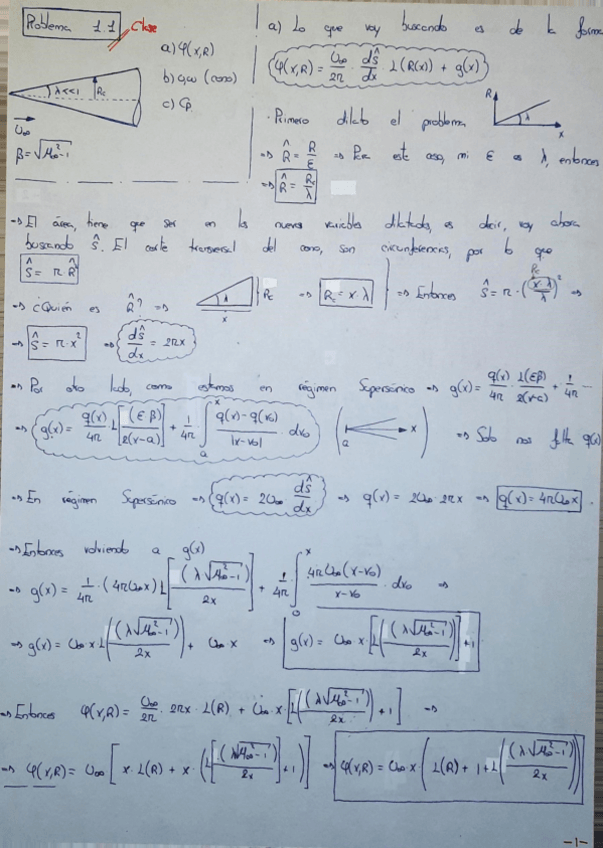 Problema 11 Clase
a) φ(x,R)
b) a,ω (cono)
c) Cp
λ<<1
Rc
U∞
β=√M∞²-1
a) Lo que voy buscando es de la forma
φ(x,R) = U∞/2π · dŜ/dx · L(R(x)) + g(x)
· Primero dilato el problema
R
λ
x
⇒ R̂ = R/ε ⇒ Para este caso, mi ε es λ, entonces
⇒ R̂ = Rc/λ
⇒ El área, tiene que ser en las nuevas variables dilatadas, es decir, voy ahora
buscando ŝ. El corte transversal del cono, son circunferencias, por lo que
Ŝ = π R̂²
⇒ ¿Quién es R̂? ⇒ λ x } Rc ⇒ Rc = x·λ } ⇒ Entonces Ŝ = π·(x·λ/λ)² ⇒
Rc
⇒ Ŝ = π·x² ⇒ dŜ/dx = 2πx
⇒ Por otro lado, como estamos en régimen Supersónico ⇒ g(x) = q(x)/4π · L(εβ)/2(x-a) + 1/4π ...
⇒ g(x) = q(x)/4π L[(ε·β)/2(x-a)] + 1/4π ∫ₐˣ q(x)-q(x₀)/|x-x₀| dx₀ (a x) ⇒ Solo nos falta q(x)
⇒ En régimen Supersónico ⇒ q(x) = 2U∞ dŜ/dx ⇒ q(x) = 2U∞·2πx ⇒ q(x) = 4πU∞x.
⇒ Entonces volviendo a g(x)
⇒ g(x) = 1/4π · (4πU∞x) L[(λ√M∞²-1)/2x] + 1/4π ∫₀ˣ 4πU∞(x-x₀)/x-x₀ · dx₀ ⇒
⇒ g(x) = U∞ x·L((λ√M∞²-1)/2x) + U∞·x ⇒ g(x) = U∞ x·[L((λ√M∞²-1)/2x)] +1
⇒ Entonces φ(x,R) = U∞/2π · 2πx·L(R) + U∞·x·[L((λ√M∞²-1)/2x) +1] ⇒
⇒ φ(x,R) = U∞[x·L(R) + x·(L[(λ√M∞²-1)/2x] +1)] ⇒ φ(x,R) = U∞x·(L(R) + 1 + L((λ√M∞²-1)/2x))
-1-